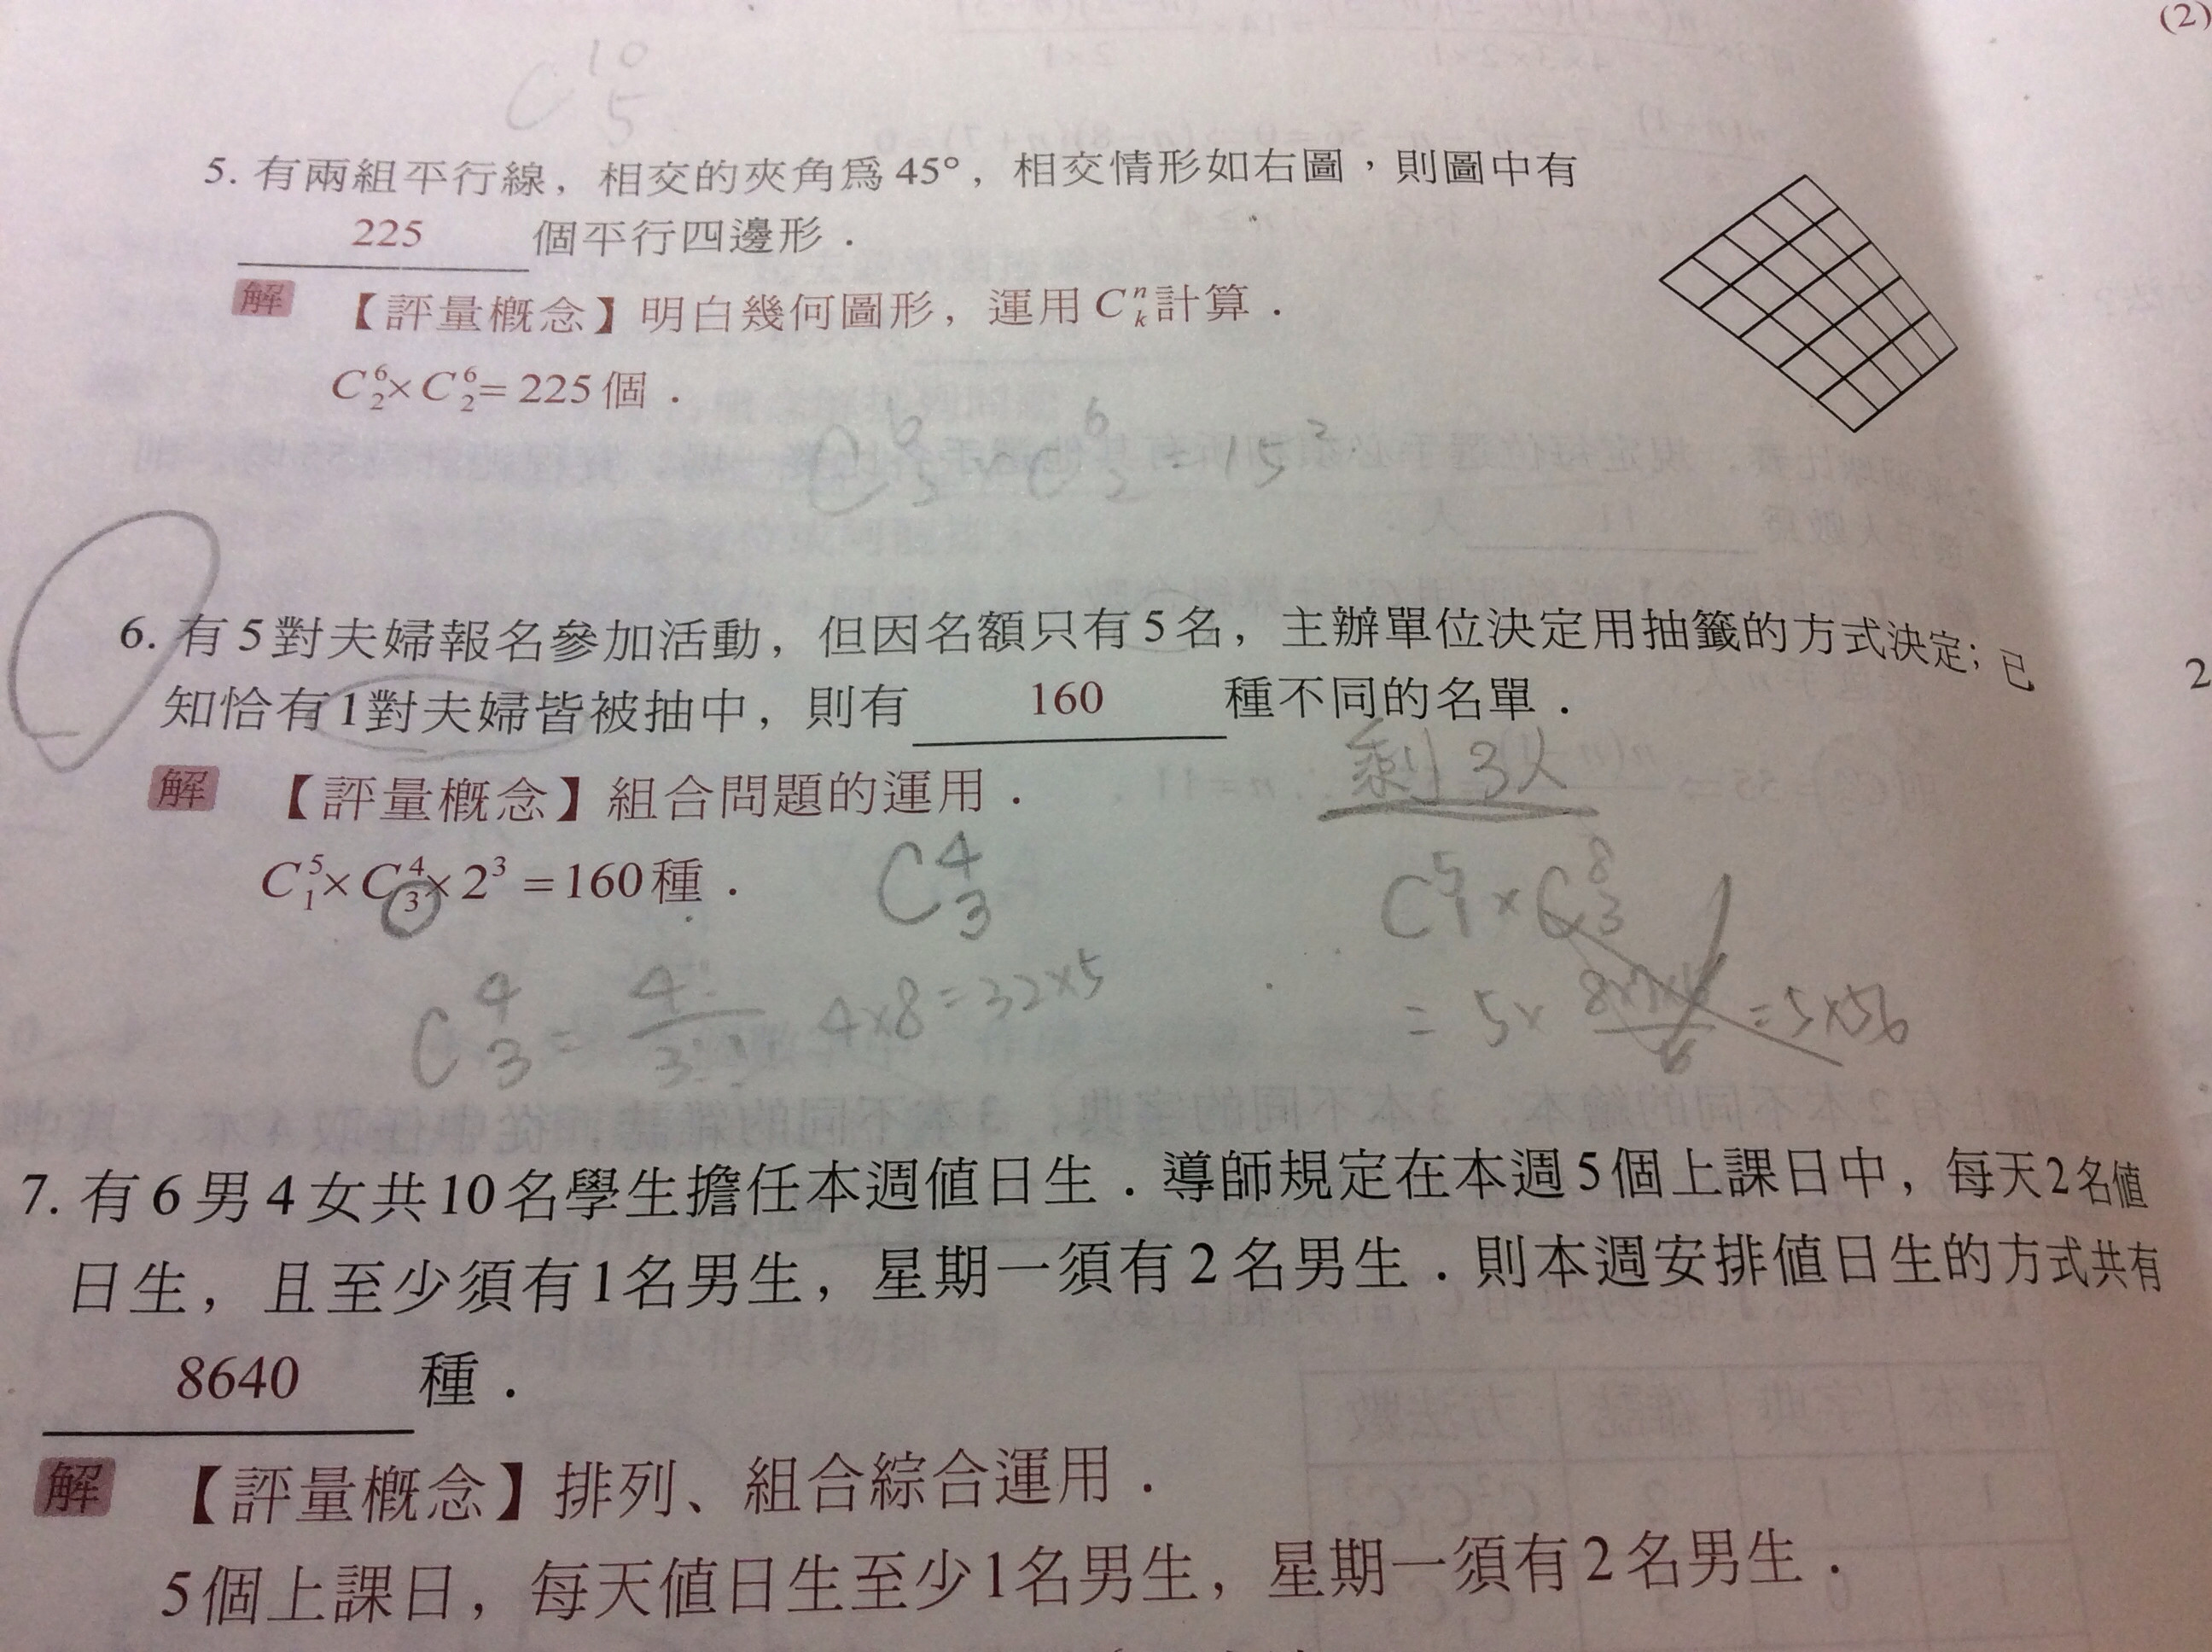 (2)
C 10 5
5. 有兩組平行線，相交的夾角為 45°，相交情形如右圖，則圖中有
225 個平行四邊形．
解 【評量概念】明白幾何圖形，運用 Cⁿₖ 計算．
C⁶₂×C⁶₂＝225 個．
C⁶₂×C⁶₂＝15²
6. 有 5 對夫婦報名參加活動，但因名額只有 5 名，主辦單位決定用抽籤的方式決定；已
知恰有 1 對夫婦皆被抽中，則有 160 種不同的名單．
2
剩3人
解 【評量概念】組合問題的運用．
C⁵₁×C⁴₃×2³＝160 種．
C⁴₃
C⁵₁×C⁸₃
C⁴₃＝4!/3!1! 4×8＝32×5
＝5×8×7×6/6＝5×56
7. 有 6 男 4 女共 10 名學生擔任本週值日生．導師規定在本週 5 個上課日中，每天 2 名值
日生，且至少須有 1 名男生，星期一須有 2 名男生．則本週安排值日生的方式共有
8640 種．
解 【評量概念】排列、組合綜合運用．
5 個上課日，每天值日生至少 1 名男生，星期一須有 2 名男生．